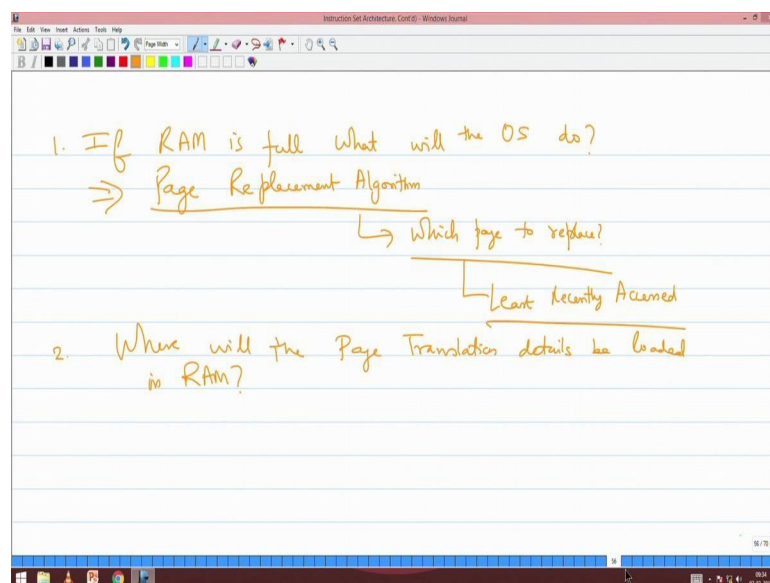 Instruction Set Architecture, Cont'd) - Windows Journal
File Edit View Insert Actions Tools Help
Page Width
B I
1. If RAM is full what will the OS do?
⇒ Page Replacement Algorithm
↳ Which page to replace?
Least Recently Accessed
2. Where will the Page Translation details be loaded
in RAM?
96/70
56
09:34